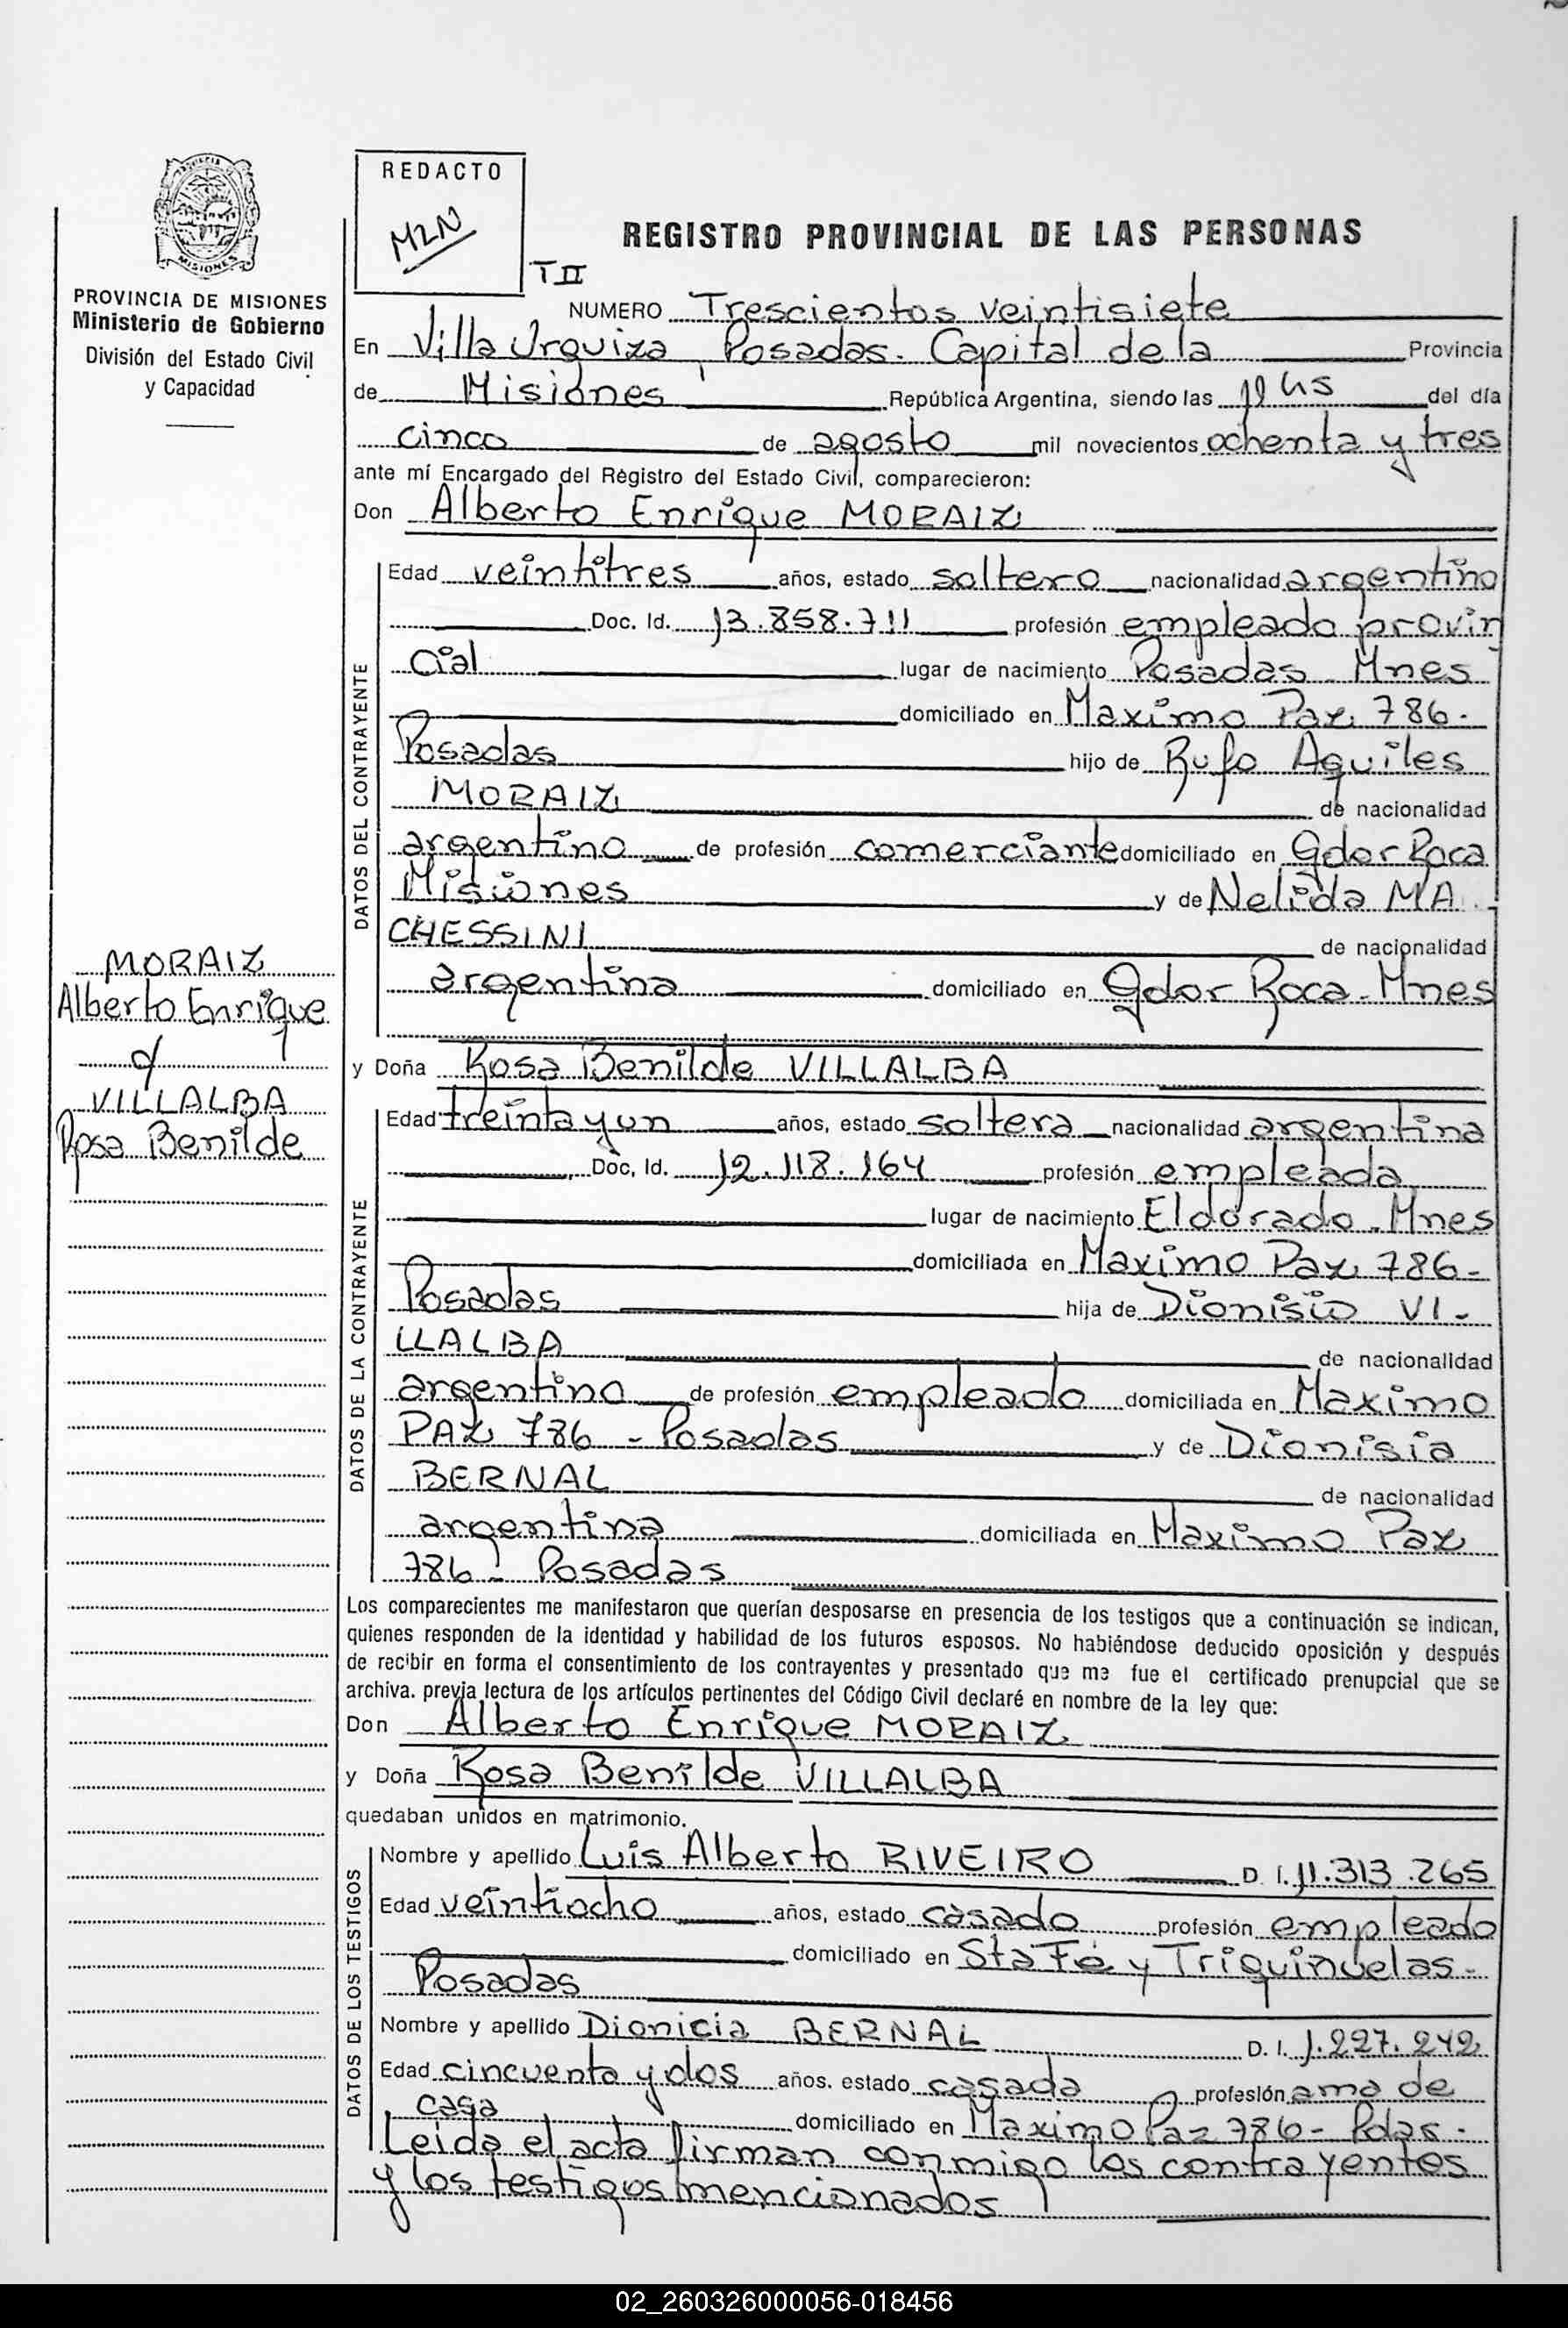 REDACTO
MZN
T II
PROVINCIA DE MISIONES
Ministerio de Gobierno
División del Estado Civil
y Capacidad
REGISTRO PROVINCIAL DE LAS PERSONAS
NUMERO Trescientos veintisiete
En Villa Urquiza, Posadas. Capital de la Provincia
de Misiones República Argentina, siendo las 11 hs del día
cinco de agosto mil novecientos ochenta y tres
ante mí Encargado del Registro del Estado Civil, comparecieron:
Don Alberto Enrique MORAIZ
DATOS DEL CONTRAYENTE
Edad veintitres años, estado soltero nacionalidad argentino
Doc. Id. 13.858.711 profesión empleado provin
cial lugar de nacimiento Posadas. Mnes
domiciliado en Maximo Paz 786-
Posadas hijo de Rufo Aquiles
MORAIZ de nacionalidad
argentino de profesión comerciante domiciliado en Gdor Roca
Misiones y de Nelida MA.
CHESSINI de nacionalidad
argentina domiciliado en Gdor Roca-Mnes
MORAIZ
Alberto Enrique
c/
VILLALBA
Rosa Benilde
y Doña Rosa Benilde VILLALBA
DATOS DE LA CONTRAYENTE
Edad treinta y un años, estado soltera nacionalidad argentina
Doc, Id. 12.118.164 profesión empleada
lugar de nacimiento Eldorado-Mnes
domiciliada en Maximo Paz 786-
Posadas hija de Dionisio VI-
LLALBA de nacionalidad
argentino de profesión empleado domiciliada en Maximo
PAZ 786 - Posadas y de Dionisia
BERNAL de nacionalidad
argentina domiciliada en Maximo Paz
786- Posadas
Los comparecientes me manifestaron que querían desposarse en presencia de los testigos que a continuación se indican,
quienes responden de la identidad y habilidad de los futuros esposos. No habiéndose deducido oposición y después
de recibir en forma el consentimiento de los contrayentes y presentado que me fue el certificado prenupcial que se
archiva. previa lectura de los artículos pertinentes del Código Civil declaré en nombre de la ley que:
Don Alberto Enrique MORAIZ
y Doña Rosa Benilde VILLALBA
quedaban unidos en matrimonio.
DATOS DE LOS TESTIGOS
Nombre y apellido Luis Alberto RIVEIRO D. I. 11.313.265
Edad veintiocho años, estado casado profesión empleado
domiciliado en Sta Fé y Triquinuelas-
Posadas
Nombre y apellido Dionicia BERNAL D. I. 1.227.242
Edad cincuenta y dos años. estado casada profesión ama de
casa domiciliado en Maximo Paz 786- Pdas-
Leida el acta firman conmigo los contrayentes
y los testigos mencionados
02_260326000056-018456